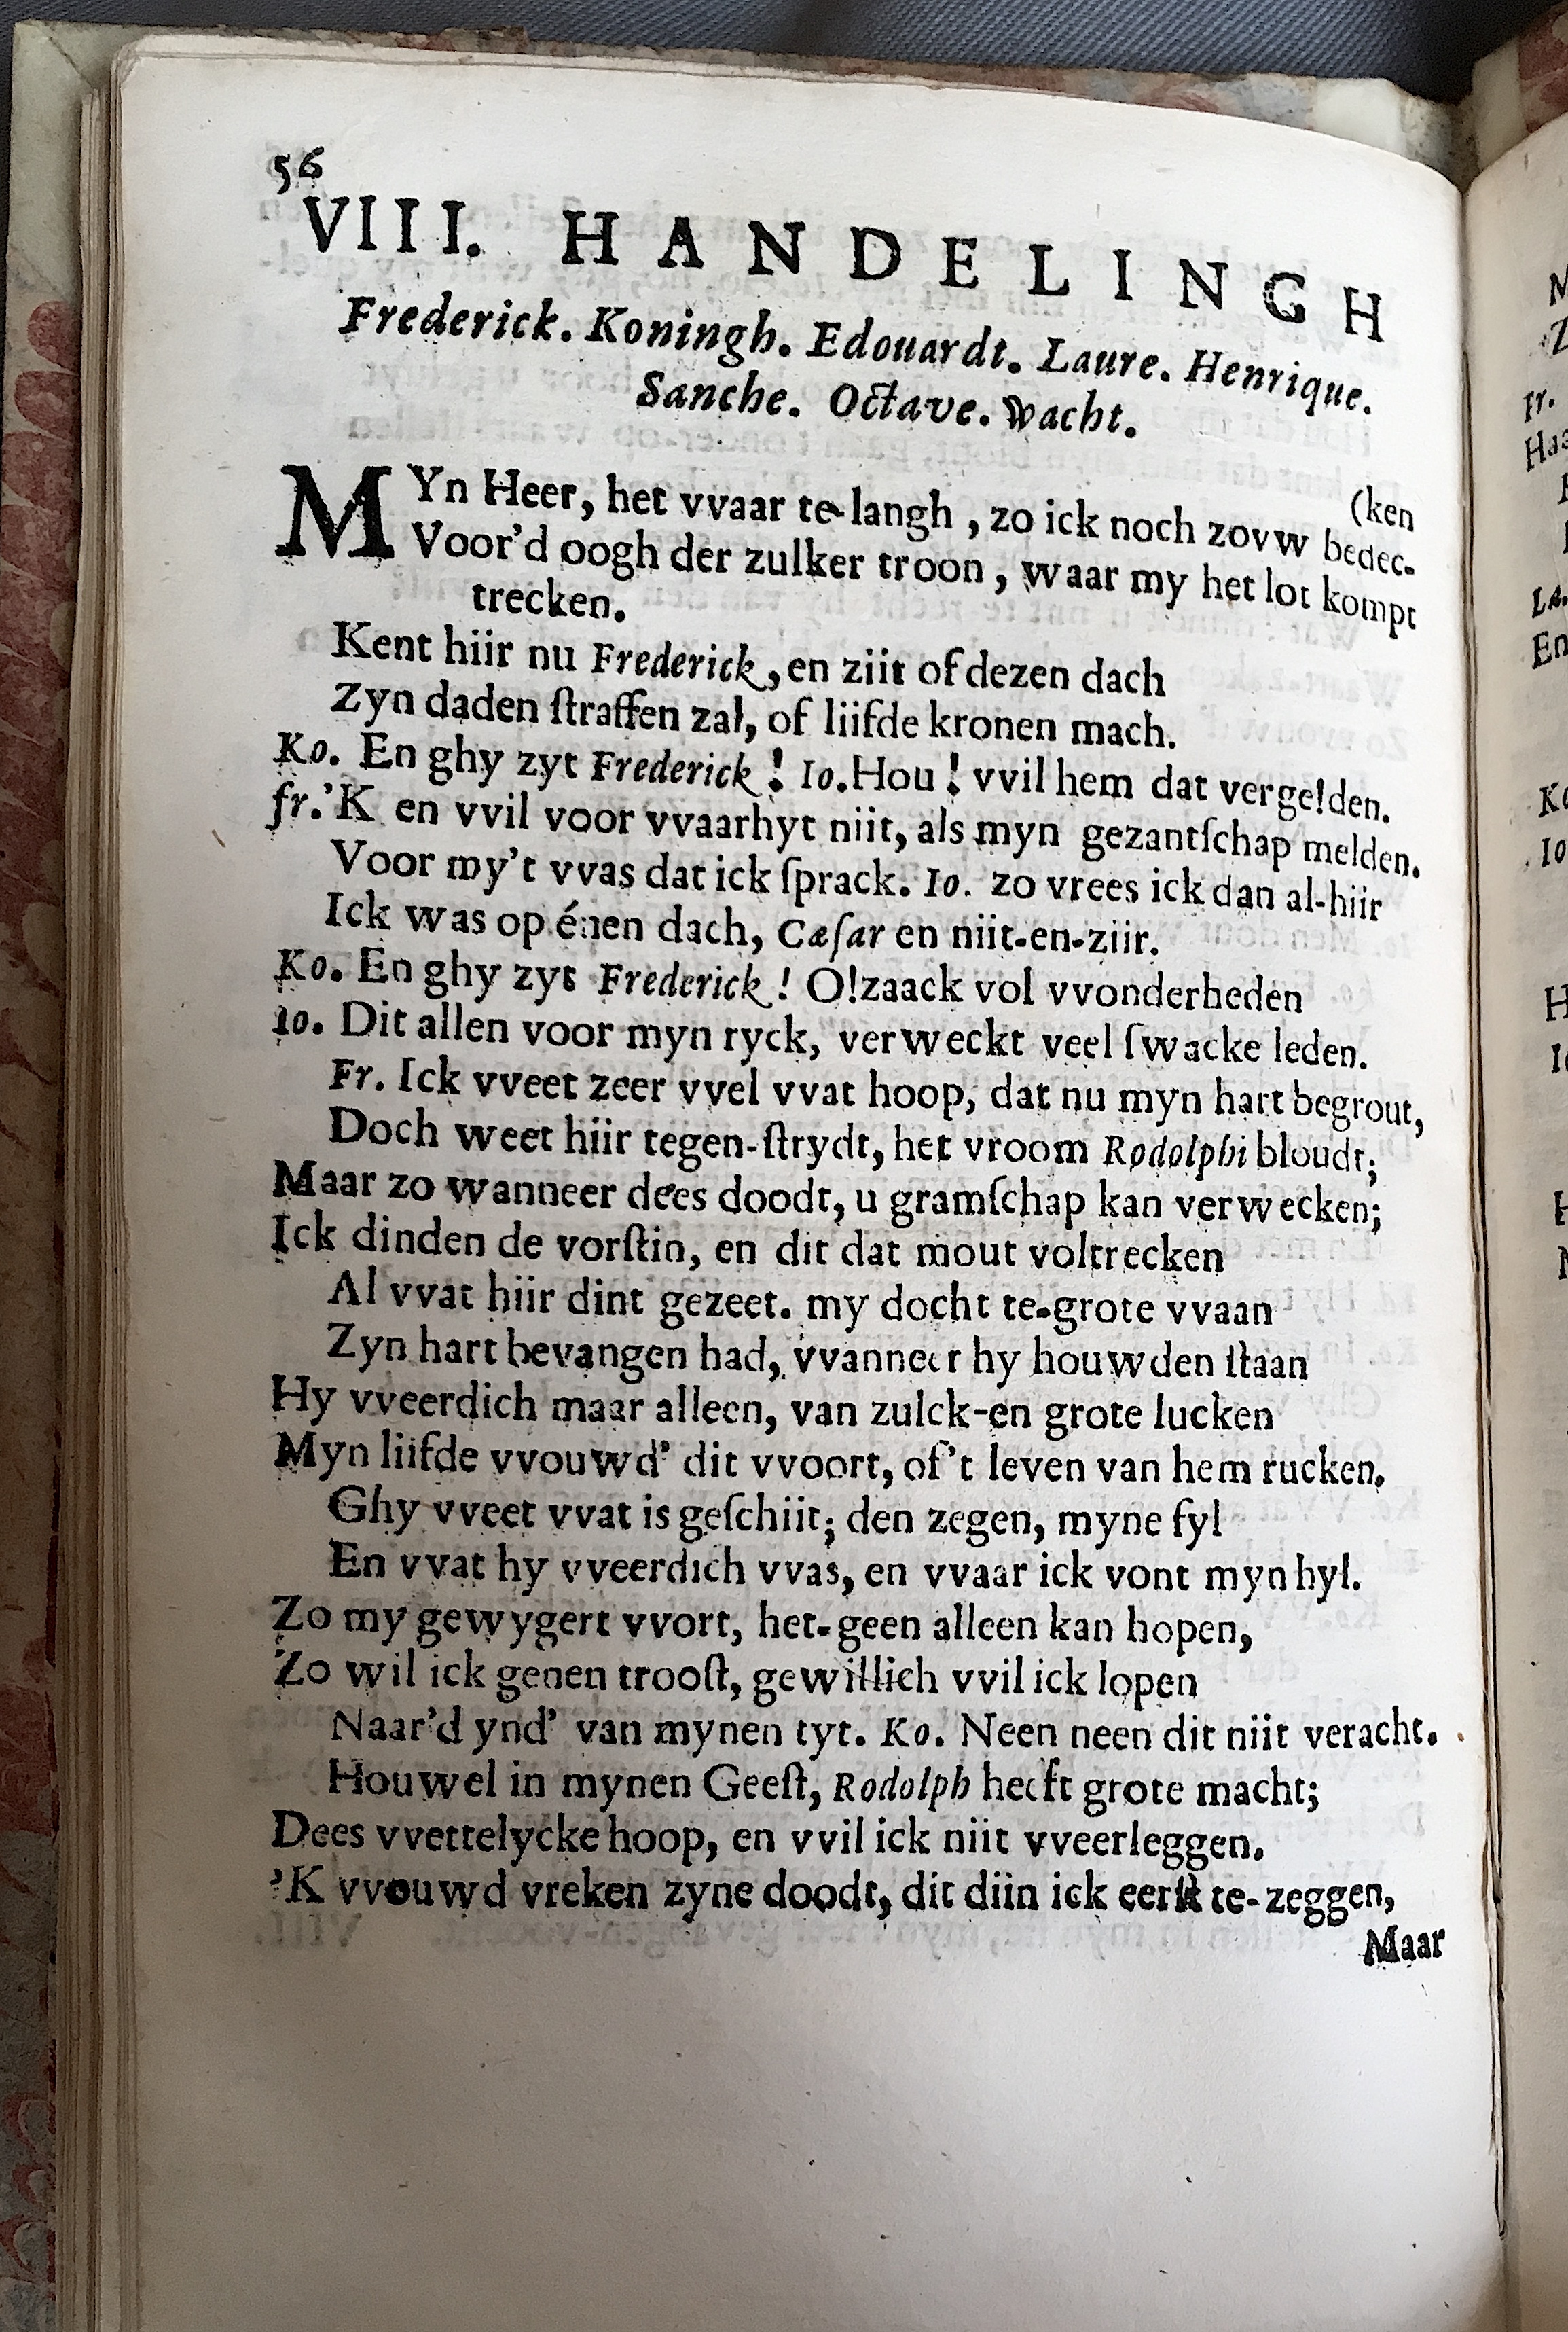 56
VIII. HANDELINGH
Frederick. Koningh. Edouardt. Laure. Henrique.
Sanche. Octave. Wacht.
(ken
MYn Heer, het vvaar te-langh, zo ick noch zovw bedec-
Voor'd oogh der zulker troon, waar my het lot kompt
trecken.
Kent hiir nu Frederick, en ziit of dezen dach
Zyn daden ſtraffen zal, of liifde kronen mach.
Ko. En ghy zyt Frederick! Io. Hou! vvil hem dat vergelden.
fr. 'K en vvil voor vvaarhyt niit, als myn gezantſchap melden.
Voor my't vvas dat ick ſprack. Io. zo vrees ick dan al-hiir
Ick was op énen dach, Cæſar en niit-en-ziir.
Ko. En ghy zyt Frederick! O! zaack vol vvonderheden
Io. Dit allen voor myn ryck, verweckt veel ſwacke leden.
Fr. Ick vveet zeer vvel vvat hoop, dat nu myn hart begrout,
Doch weet hiir tegen-ſtrydt, het vroom Rodolphi bloudt;
Maar zo wanneer dees doodt, u gramſchap kan verwecken;
Ick dinden de vorſtin, en dit dat mout voltrecken
Al vvat hiir dint gezeet. my docht te-grote vvaan
Zyn hart bevangen had, vvanneer hy houwden ſtaan
Hy vveerdich maar alleen, van zulck-en grote lucken
Myn liifde vvouwd' dit vvoort, of't leven van hem rucken.
Ghy vveet vvat is geſchiit; den zegen, myne fyl
En vvat hy vveerdich vvas, en vvaar ick vont myn hyl.
Zo my gewygert vvort, het-geen alleen kan hopen,
Zo wil ick genen trooſt, gewillich vvil ick lopen
Naar'd ynd' van mynen tyt. Ko. Neen neen dit niit veracht.
Houwel in mynen Geeſt, Rodolph heeft grote macht;
Dees vvettelycke hoop, en vvil ick niit vveerleggen.
'K vvouwd vreken zyne doodt, dit diin ick eerſt te-zeggen,
Maar